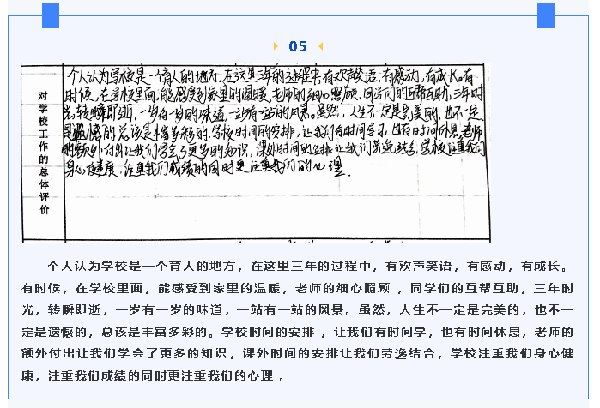 05
对学校工作的总体评价
个人认为学校是一个育人的地方,在这里三年的过程中,有欢声笑语,有感动,有成长。有
时候,在学校里面,能感受到家里的温暖,老师的细心照顾,同学们的互帮互助,三年时
光,转瞬即逝,一岁有一岁的味道,一站有一站的风景,虽然,人生不一定是完美的,也不一定
是遗憾的,总该是丰富多彩的。学校时间的安排,让我们有时间学,也有时间休息,老师
的额外付出让我们学会了更多的知识,课外时间的安排让我们劳逸结合,学校注重我们
身心健康,注重我们成绩的同时更注重我们的心理。
个人认为学校是一个育人的地方,在这里三年的过程中,有欢声笑语,有感动,有成长。
有时候,在学校里面,能感受到家里的温暖,老师的细心照顾,同学们的互帮互助,三年时
光,转瞬即逝,一岁有一岁的味道,一站有一站的风景,虽然,人生不一定是完美的,也不一
定是遗憾的,总该是丰富多彩的。学校时间的安排,让我们有时间学,也有时间休息,老师的
额外付出让我们学会了更多的知识,课外时间的安排让我们劳逸结合,学校注重我们身心健
康,注重我们成绩的同时更注重我们的心理,